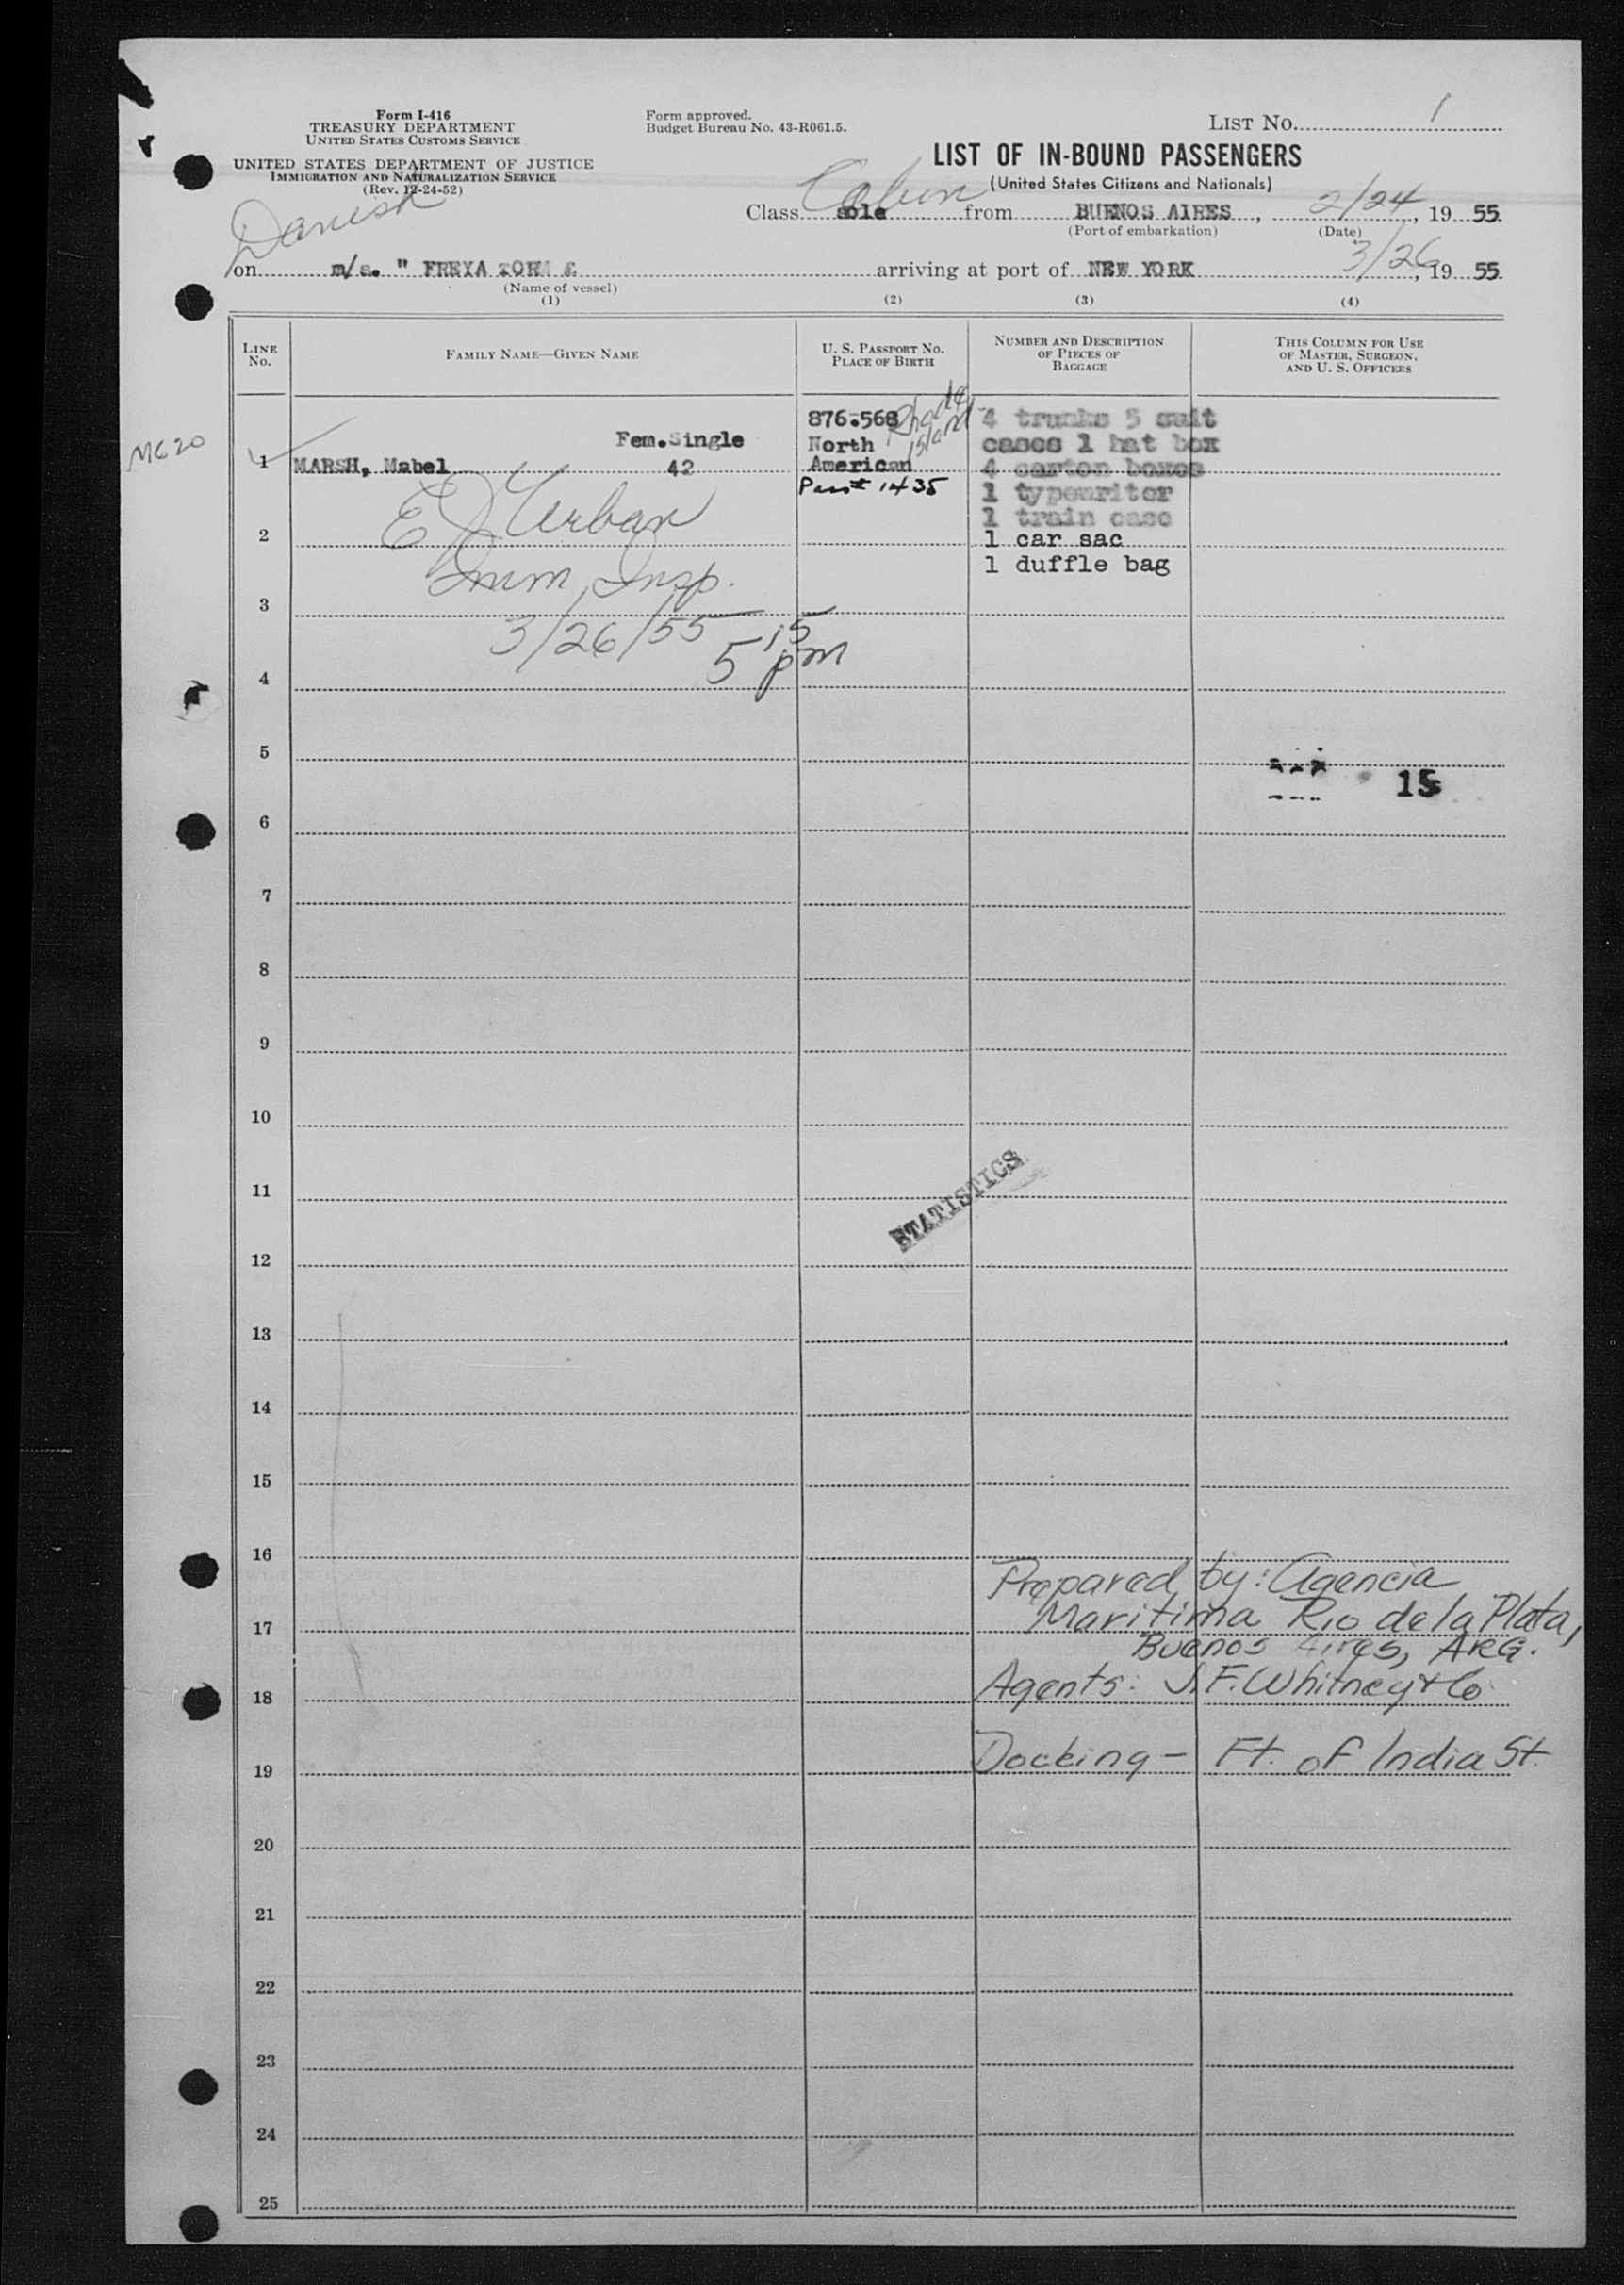 Form I-416
TREASURY DEPARTMENT
UNITED STATES CUSTOMS SERVICE
UNITED STATES DEPARTMENT OF JUSTICE
IMMIGRATION AND NATURALIZATION SERVICE
(Rev. 12-24-52)
Form approved.
Budget Bureau No. 43-R061.5.
LIST No. 1
LIST OF IN-BOUND PASSENGERS
(United States Citizens and Nationals)
Danish
Cabin
Class sole from BUENOS AIRES, 2/24, 19 55
(Port of embarkation) (Date)
on m/s. " FREYA TORM " arriving at port of NEW YORK 3/26, 19 55
(Name of vessel)
(1) (2) (3) (4)
LINE No.
FAMILY NAME—GIVEN NAME
U. S. PASSPORT NO. PLACE OF BIRTH
NUMBER AND DESCRIPTION OF PIECES OF BAGGAGE
THIS COLUMN FOR USE OF MASTER, SURGEON, AND U. S. OFFICERS
MC 20
1 MARSH, Mabel Fem. Single 42
876.568
North
American
Rhode Island
Pass# 1435
4 trunks 5 suit
cases 1 hat box
4 carton boxes
1 typewriter
1 train case
1 car sac
1 duffle bag
E J Urban
Imm. Insp.
3/26/55 5 15 pm
2
3
4
5
15
6
7
8
9
10
11
STATISTICS
12
13
14
15
16
Prepared by: Agencia
Maritima Rio de la Plata,
17
Buenos Aires, ARG.
18 Agents: J. F. Whitney & Co
19 Docking - Ft. of India St.
20
21
22
23
24
25